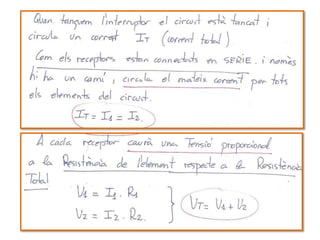 Quan tanquem l'interruptor el circuit està tancat i
circula un corrent IT (corrent total)
Com els receptors estan connectats en SERIE i només
hi ha un camí, circula el mateix corrent per tots
els elements del circuit.
IT = I1 = I2.
A cada receptor caurà una Tensió proporcional
a la Resistència de l'element respecte a la Resistència
Total
V1 = I1 · R1
V2 = I2 · R2.
VT = V1 + V2